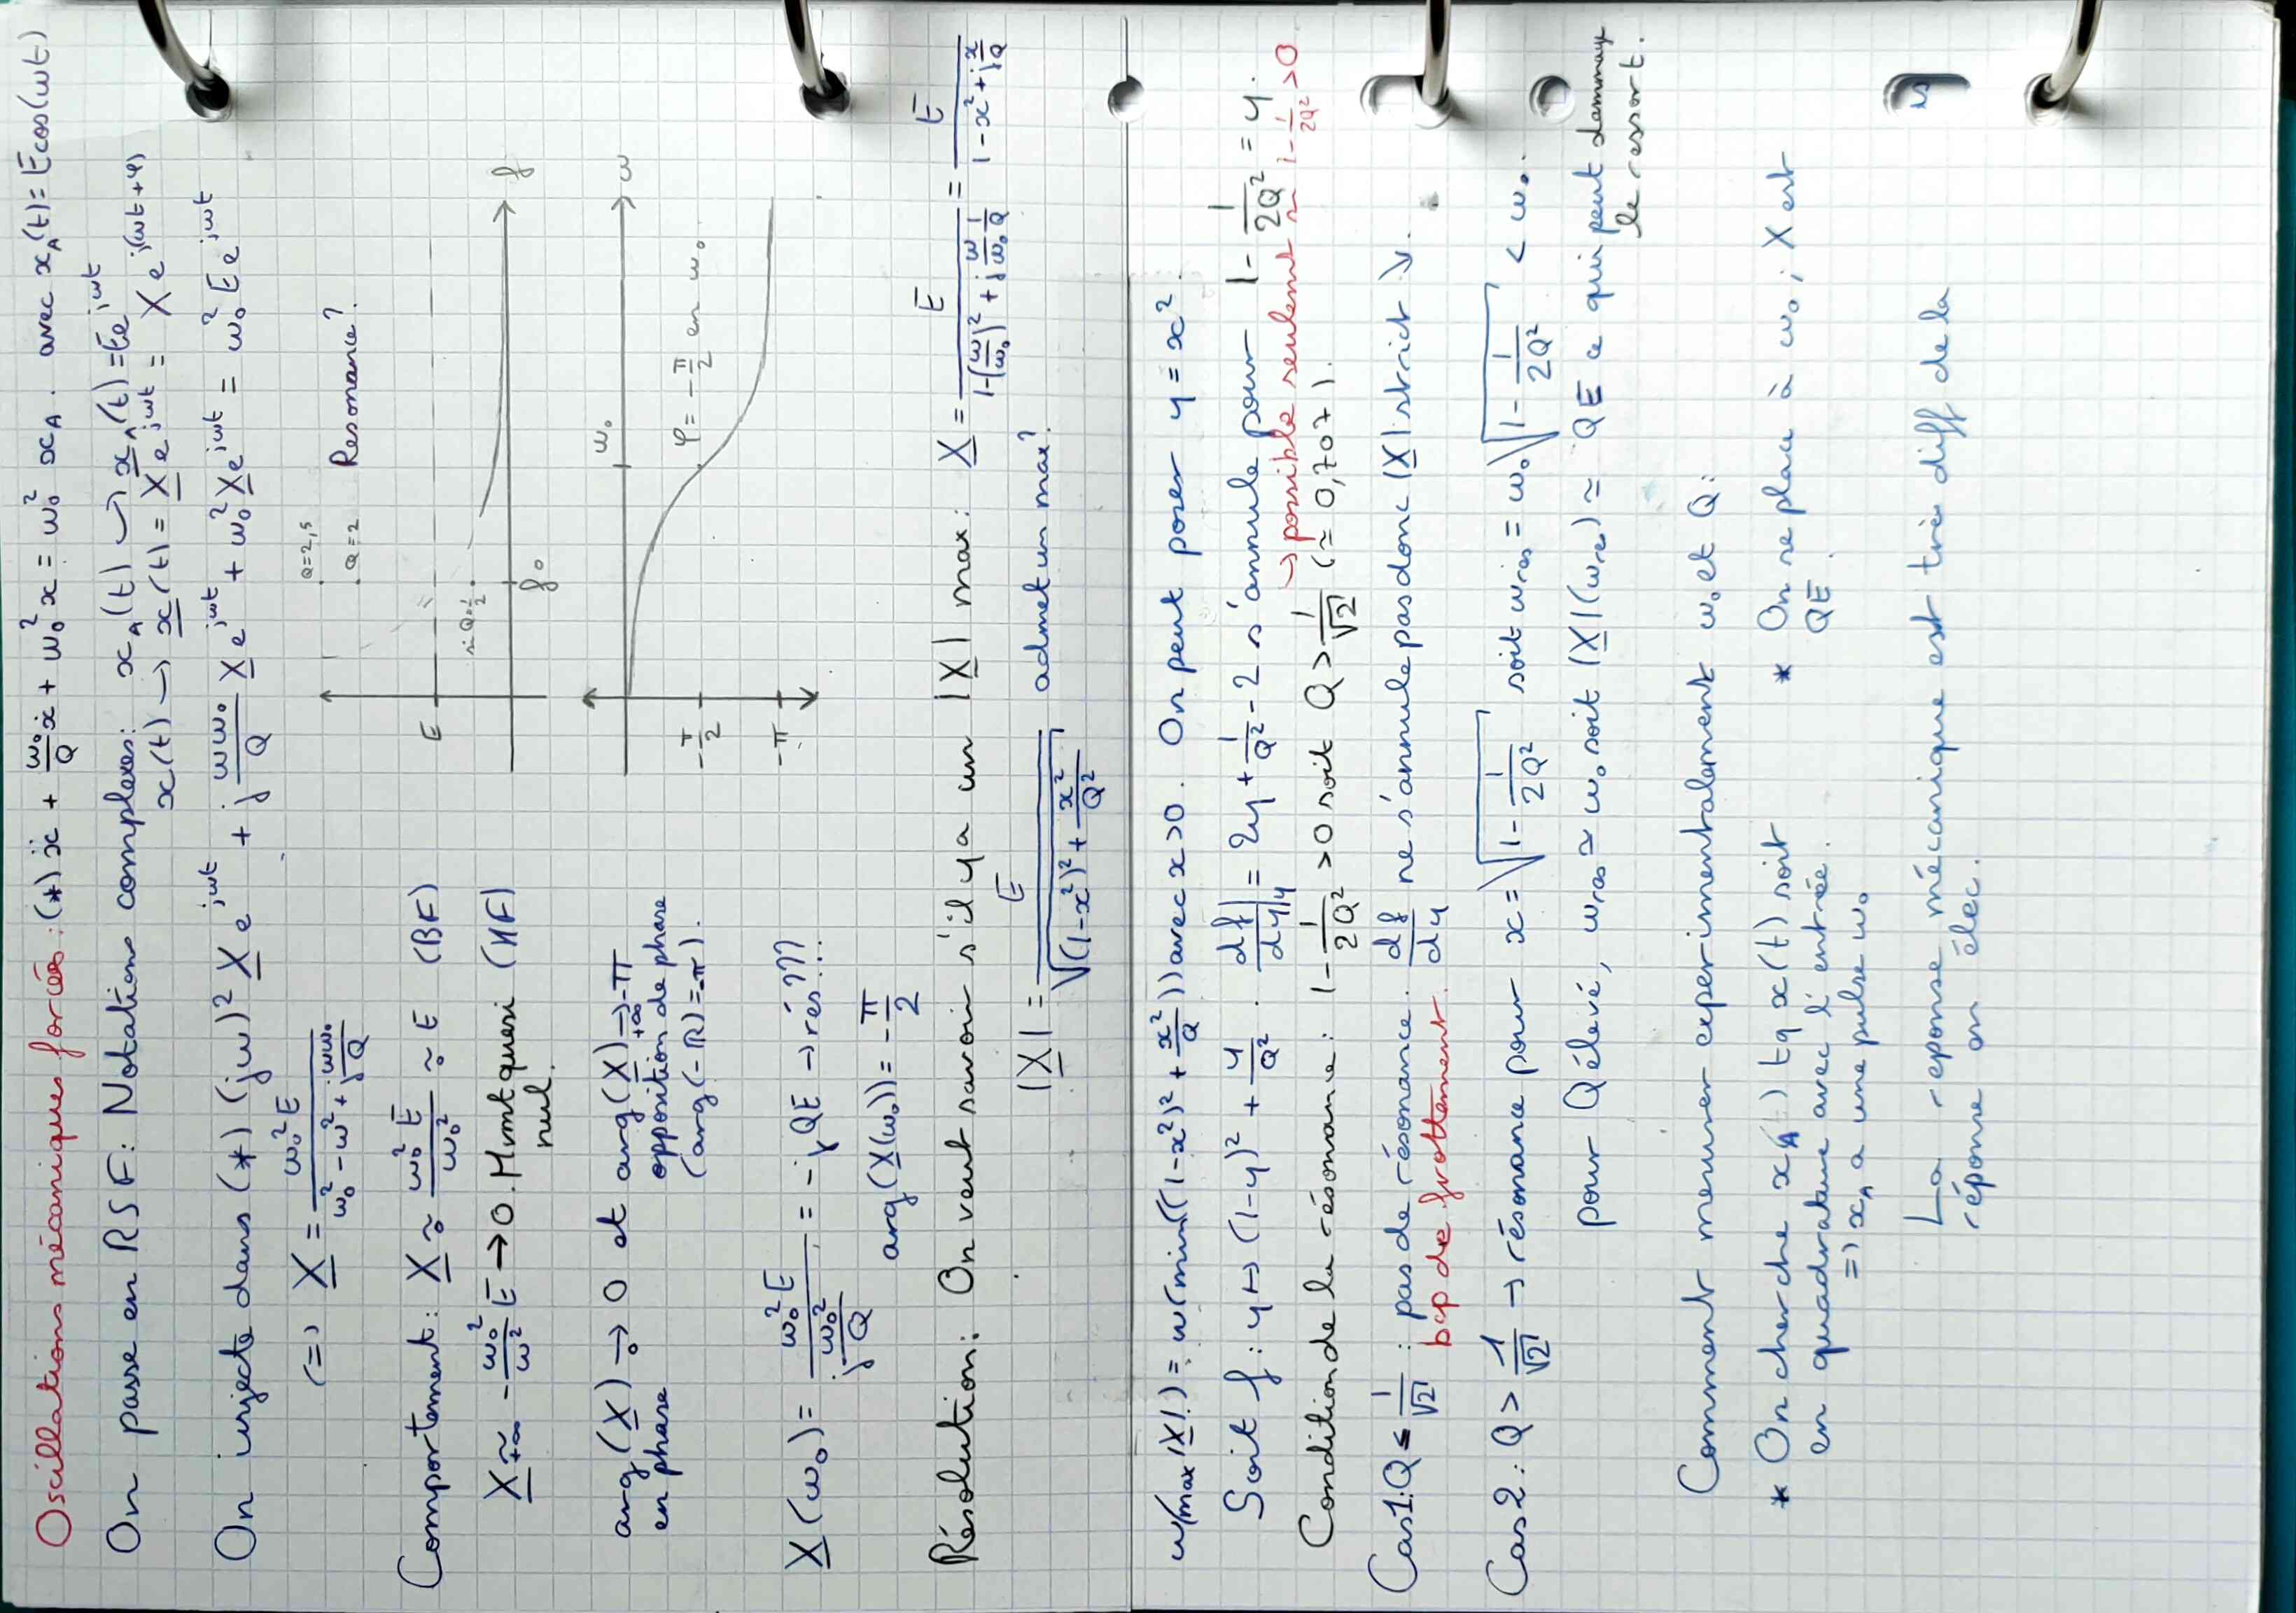 Oscillations mécaniques forcées : (*) ẍ + ω₀/Q ẋ + ω₀² x = ω₀² x_A . avec x_A(t) = E cos(ωt)
On passe en RSF : Notations complexes : x_A(t) → x_A(t) = Ee^jωt
x(t) → x(t) = X e^jωt = X e^j(ωt+φ)
On injecte dans (*) (jω)² X e^jωt + j ωω₀/Q X e^jωt + ω₀² X e^jωt = ω₀² E e^jωt
(=) X = ω₀² E / (ω₀² - ω² + j ωω₀/Q)
Q=2,5
Q=2
Resonance?
E
f
f₀
Comportement : X ~₀ ω₀² E / ω₀² ~ E (BF)
X ~+∞ - ω₀²/ω² E → 0. (HF)
nul.
arg(X) →₀ 0 et arg(X) →+∞ -π
en phase
opposition de phase
(arg(-R) = -π).
ω₀
ω
-π/2
φ = -π/2 en ω₀
-π
X(ω₀) = ω₀² E / (j ω₀²/Q) = -jQE → rés???
arg(X(ω₀)) = -π/2
Résolution : On veut savoir s'il y a un |X| max : X = E / (1-(ω/ω₀)² + j ω/ω₀ 1/Q) = E / (1-x² + j x/Q)
|X| = E / √((1-x²)² + x²/Q²) admet un max?
ω(max|X|) = ω(min((1-x²)² + x²/Q)) avec x>0. On peut poser y = x².
Soit f : y ↦ (1-y)² + y/Q² . df/dy|y = 2y + 1/Q² - 2 s'annule pour 1 - 1/2Q² = y.
→ possible seulement si 1 - 1/2Q² > 0
Condition de la résonance : 1 - 1/2Q² > 0 soit Q > 1/√2 (≃ 0,707).
Cas 1 : Q ≤ 1/√2 : pas de résonance. df/dy ne s'annule pas donc |X| strict ↘.
bcp de frottement.
Cas 2 : Q > 1/√2 → résonance pour x = √(1 - 1/2Q²) soit ω_res = ω₀ √(1 - 1/2Q²) < ω₀.
pour Q élevé, ω_res ≃ ω₀ soit |X|(ω_res) ≃ QE ce qui peut
le ressort.
Comment mesurer experimentalement ω₀ et Q :
* On cherche x_A( ) tq x(t) soit
en quadrature avec l'entrée.
=) x_A a une pulse ω₀
* On se place à ω₀ ; X est
QE.
La reponse mécanique est très diff de la
réponse en élec.